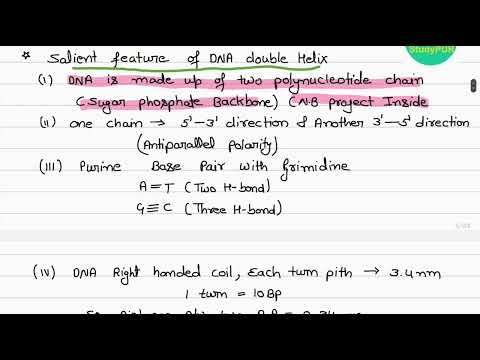 StudyPUR
* Salient feature of DNA double Helix
(i) DNA is made up of two polynucleotide chain
(Sugar phosphate Backbone) (N.B project Inside
(ii) one chain → 5'-3' direction & Another 3'-5' direction
(Antiparallel Polarity)
(III) Purine Base Pair with Primidine
A=T (Two H-bond)
G≡C (Three H-bond)
(iv) DNA Right handed coil, Each turn pith → 3.4nm
1 turn = 10BP